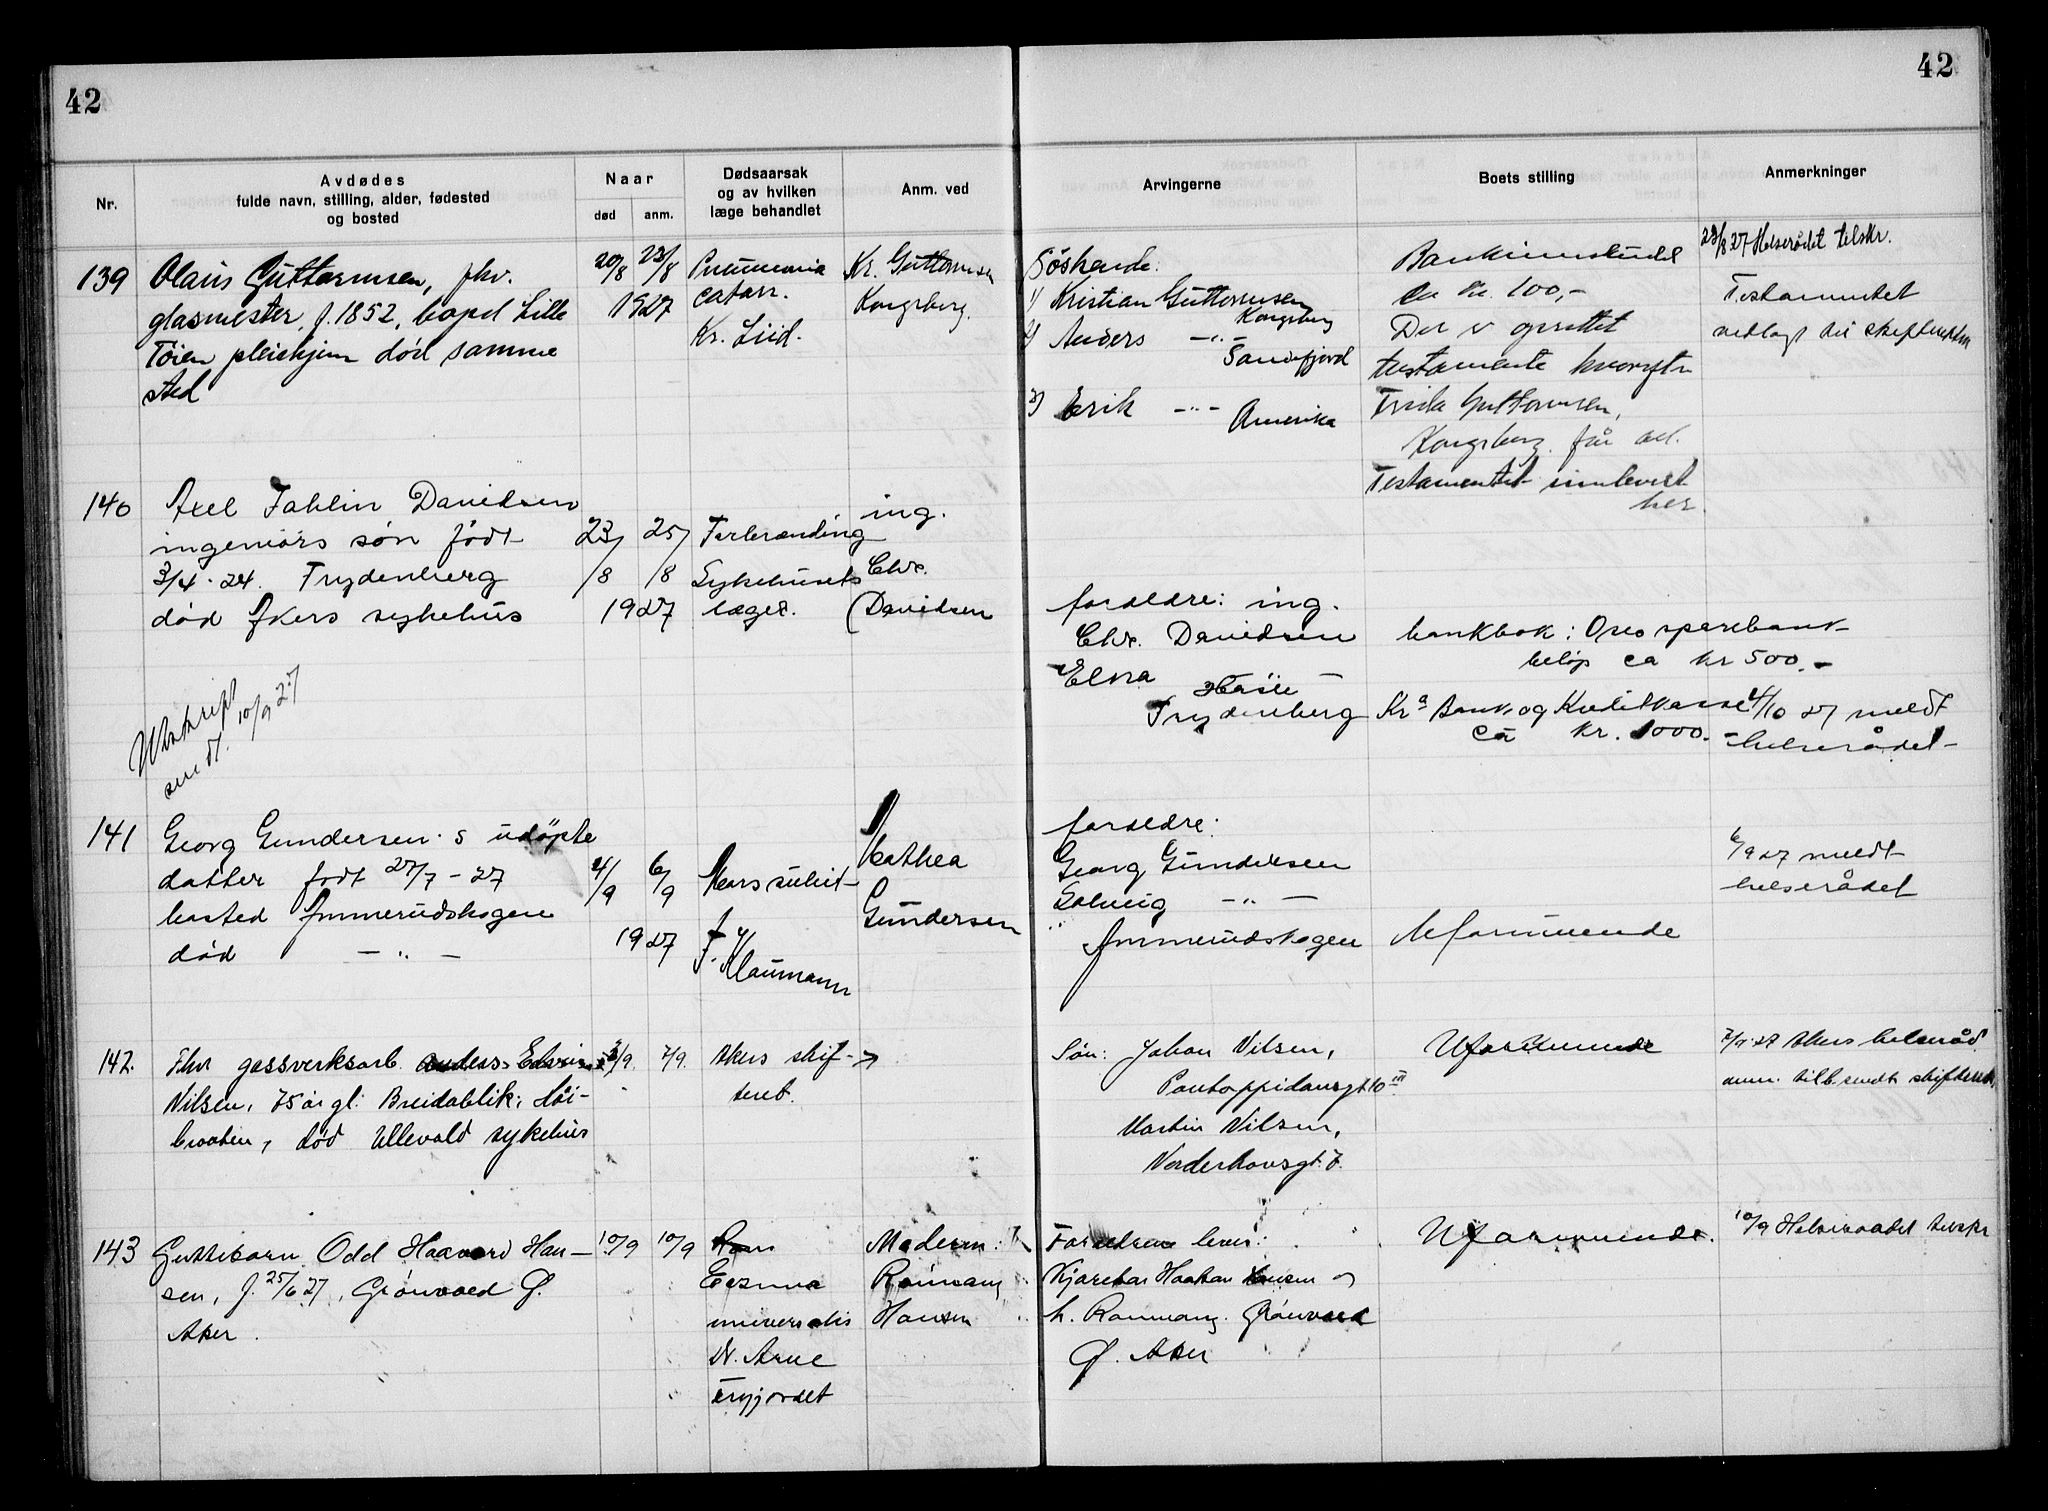 42
42
Nr.
Avdødes
fulde navn, stilling, alder, fødested
og bosted
Naar
død
anm.
Dødsaarsak
og av hvilken
læge behandlet
Anm. ved
Arvingerne
Boets stilling
Anmerkninger
139
Olaus Guttormsen, fhv.
glasmester, f. 1852, bopel Lille
Tøien pleiehjem død samme
sted
20/8
23/8
1927
Pneumonia
catarr.
Kr. Guttormsen
Kongsberg.
Søskende:
1) Kristian Guttormsen
Kongsberg
2) Anders —"—
Sandefjord
3) Erik —"—
Amerika
Bankinnskudd
ca kr. 100,-
Der er oprettet
testamente hvorefter
Guttormsen,
Kongsberg får alt.
Testamentet innlevert
her.
23/8 27 Helserådet tilskr.
Testamentet
vedlagt
140
Axel Fahlin Davidsen
ingeniørs søn født
3/4-24. Frydenberg
død Akers sykehus
23/8
25/8
1927
Forbrænding
Sykehusets
læge.
ing.
Chr.
Davidsen
foreldre: ing.
Chr. Davidsen
Elna —
Frydenberg
bankbok: Oslo sparebank
beløp ca kr 500.-
Kra Bank og Kreditkasse
ca kr. 1000.-
4/10 27 meldt
helserådet-
Utskrift
sendt. 10/9 27
141
Georg Gundersen's udøpte
datter født 27/7-27
bosted Ammerudskogen
død —"—
4/9
6/9
1927
Mors subit
Mathea
Gundersen
foreldre:
Georg Gundersen
Solveig —"—
Ammerudskogen
Uformuende
6/9 27 meldt
helserådet
142.
Fhv gassverksarb. Anders Edvin
Nilsen, 75 år gl. Breidablik, Høi-
braaten, død Ullevold sykehus
3/9.
7/9.
Akers skif-
teret.
Søn: Johan Nilsen,
Pontoppidansgt 10 III
Martin Nilsen,
Norderhovsgt. 7.
Uformuende
Akers helseråd
143
Guttibarn Odd Haavard Han-
sen, f. 25/6 27, Grönvold Ø.
Aker.
10/9
10/9
Eczma
universalis
Dr. Arne
Moderen:
Hansen
Foreldrene lever:
Haakon Hansen og
Grönvold
Ø. Aker
Uformuende.
10/9 Helseraadet tilskr